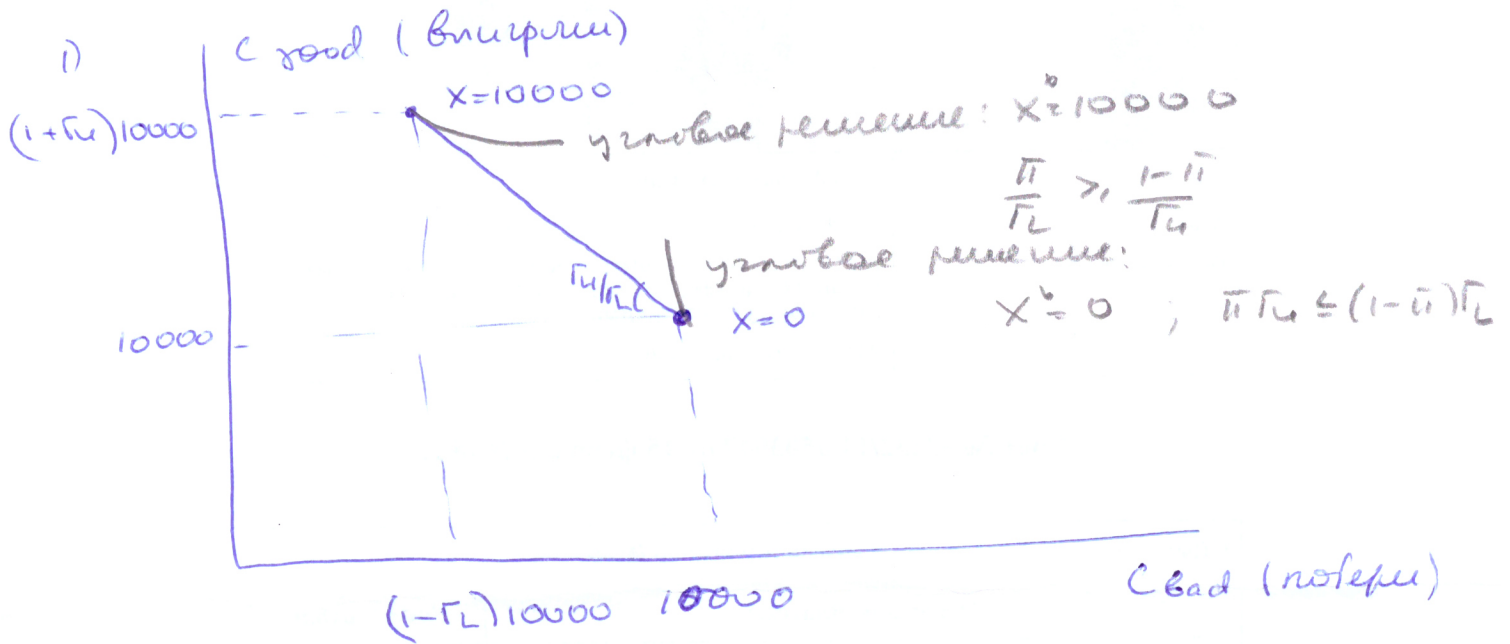 1)
C good (выигрыш)
(1+r_H)10000
x=10000
угловое решение: x*=10000
π/r_L ≥ (1-π)/r_H
угловое решение:
r_H/r_L
x=0
x*=0 ; π r_H ≤ (1-π) r_L
10000
(1-r_L)10000 10000
C bad (потери)